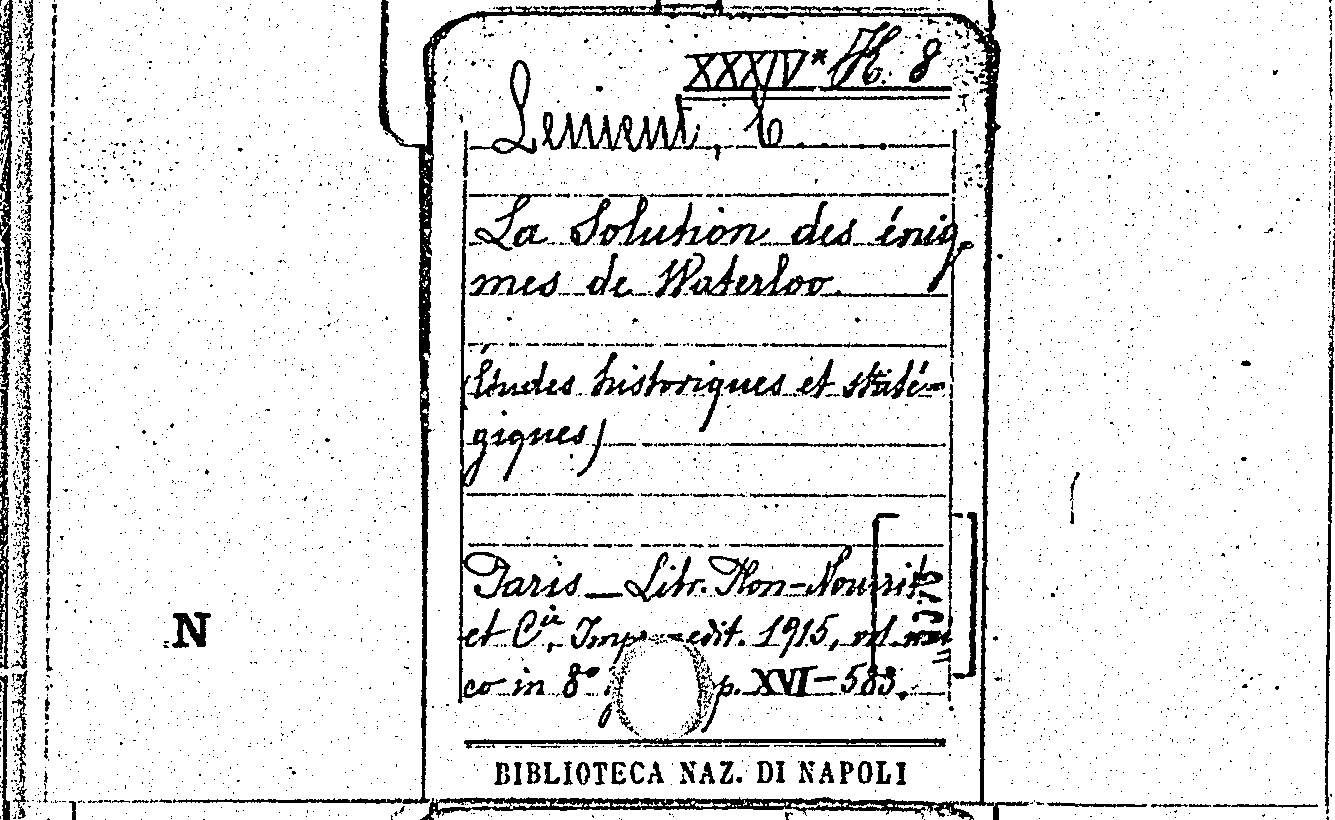 XXXIV* H. 8
Lement, C
La Solution des énig
mes de Waterloo.
(Études historiques et staté-
giques)
Paris — Libr. Plon-Nourrit
et Cie, Imp. edit. 1915, vol. uni
co in 8° p. XVI-583.
N
BIBLIOTECA NAZ. DI NAPOLI